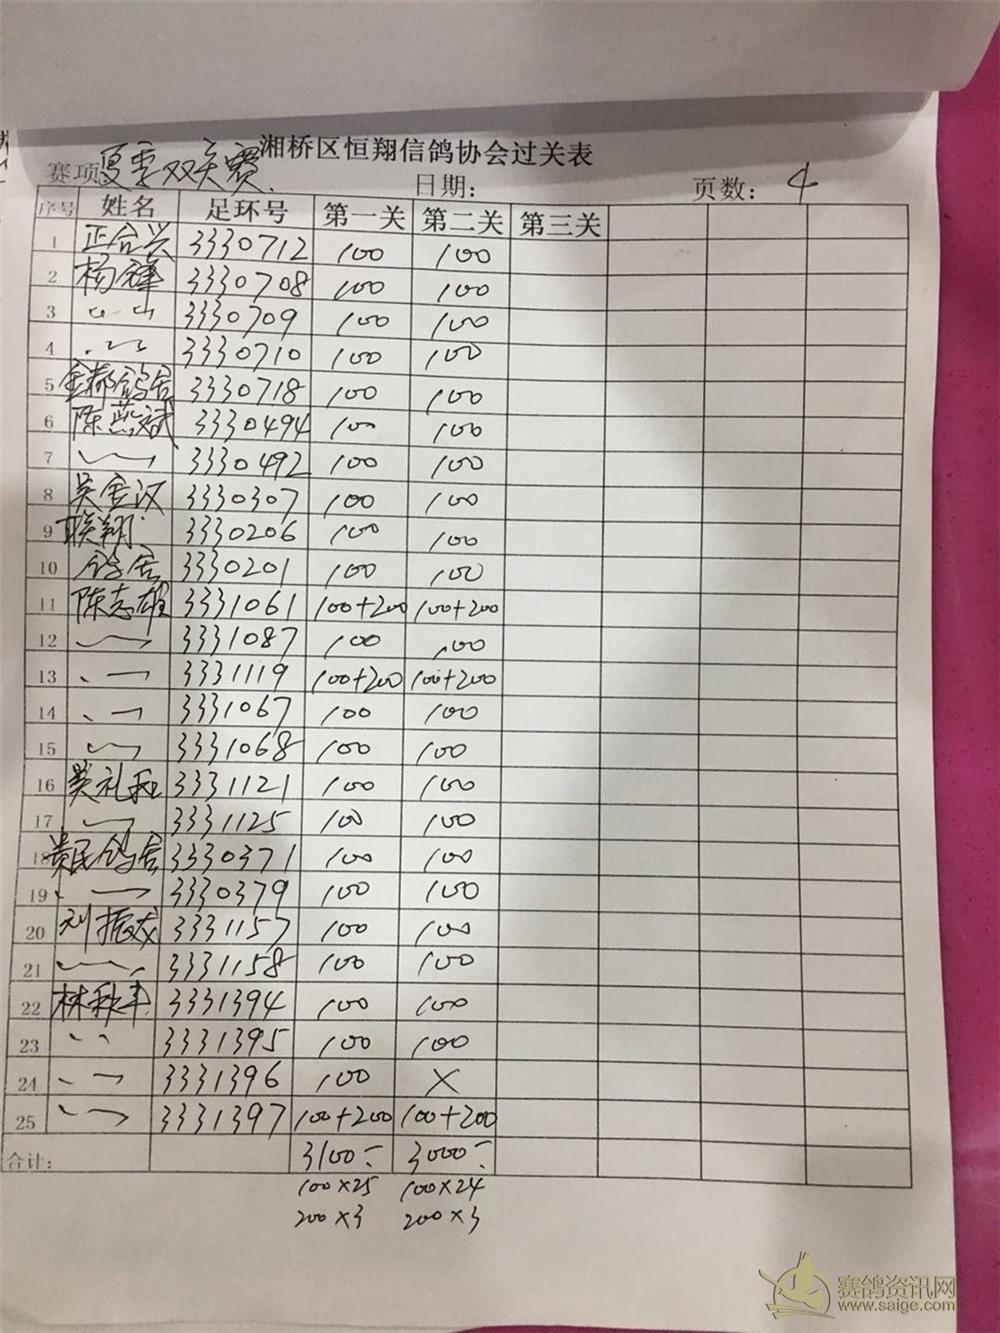 湘桥区恒翔信鸽协会过关表
赛项 夏季双关赛. 日期: 页数: 4
序号 姓名 足环号 第一关 第二关 第三关
1 正合兴 3330712 100 100
2 杨锋 3330708 100 100
3 3330709 100 100
4 3330710 100 100
5 金都鸽舍 3330718 100 100
6 陈燕斌 3330494 100 100
7 3330492 100 100
8 吴金汉 3330307 100 100
9 联翔 3330206 100 100
10 鸽舍 3330201 100 100
11 陈志雄 3331061 100+200 100+200
12 3331087 100 100
13 3331119 100+200 100+200
14 3331067 100 100
15 3331068 100 100
16 吴礼和 3331121 100 100
17 3331125 100 100
18 贵民鸽舍 3330371 100 100
19 3330379 100 100
20 刘振龙 3331157 100 100
21 3331158 100 100
22 林秋丰 3331394 100 100
23 3331395 100 100
24 3331396 100 ×
25 3331397 100+200 100+200
合计: 3100- 3000-
100×25 100×24
200×3 200×3
赛鸽资讯网
www.saige.com